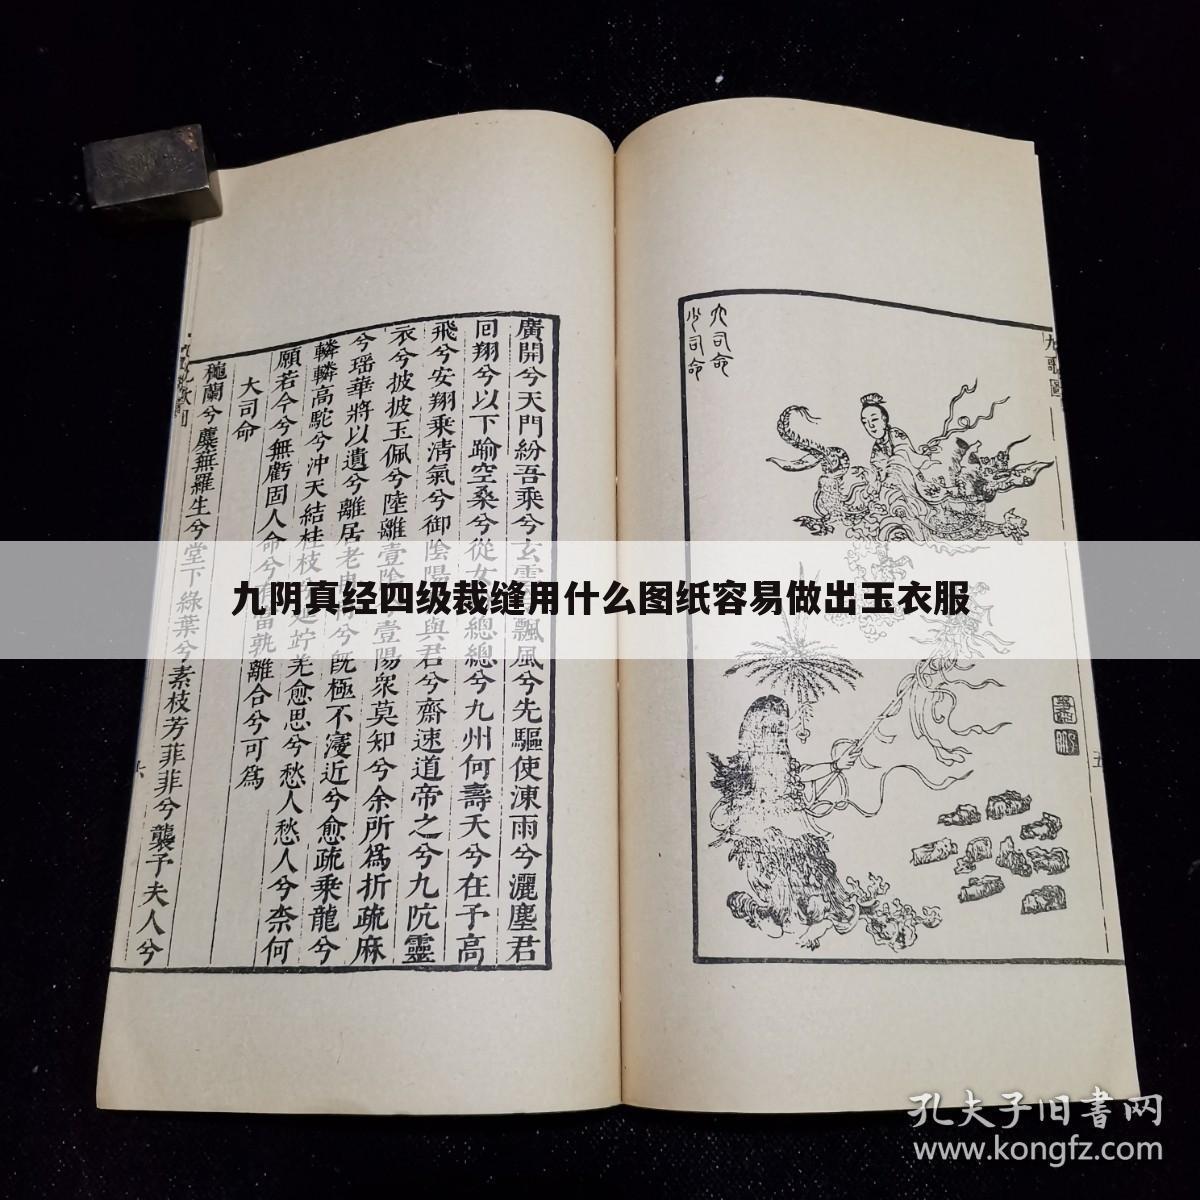 九阴真经四级裁缝用什么图纸容易做出玉衣服
大司命
少司命
九歌圖
五
廣開兮天門紛吾乘兮玄雲飄風兮先驅使涷雨兮灑塵君
回翔兮以下踰空桑兮從女總總兮九州何壽夭兮在予高
飛兮安翔乘清氣兮御陰陽與君兮齋速道帝之兮九坑靈
衣兮披披玉佩兮陸離壹陰兮壹陽衆莫知兮余所爲折疏麻
兮瑶華將以遺兮離居老冉兮既極不寖近兮愈疏乘龍兮
轔轔高駝兮沖天結桂枝延竚羌愈思兮愁人愁人兮柰何
願若今兮無虧固人命兮有當孰離合兮可爲
大司命
穐蘭兮麋蕪羅生兮堂下綠葉兮素枝芳菲菲兮襲予夫人兮
孔夫子旧书网
www.kongfz.com